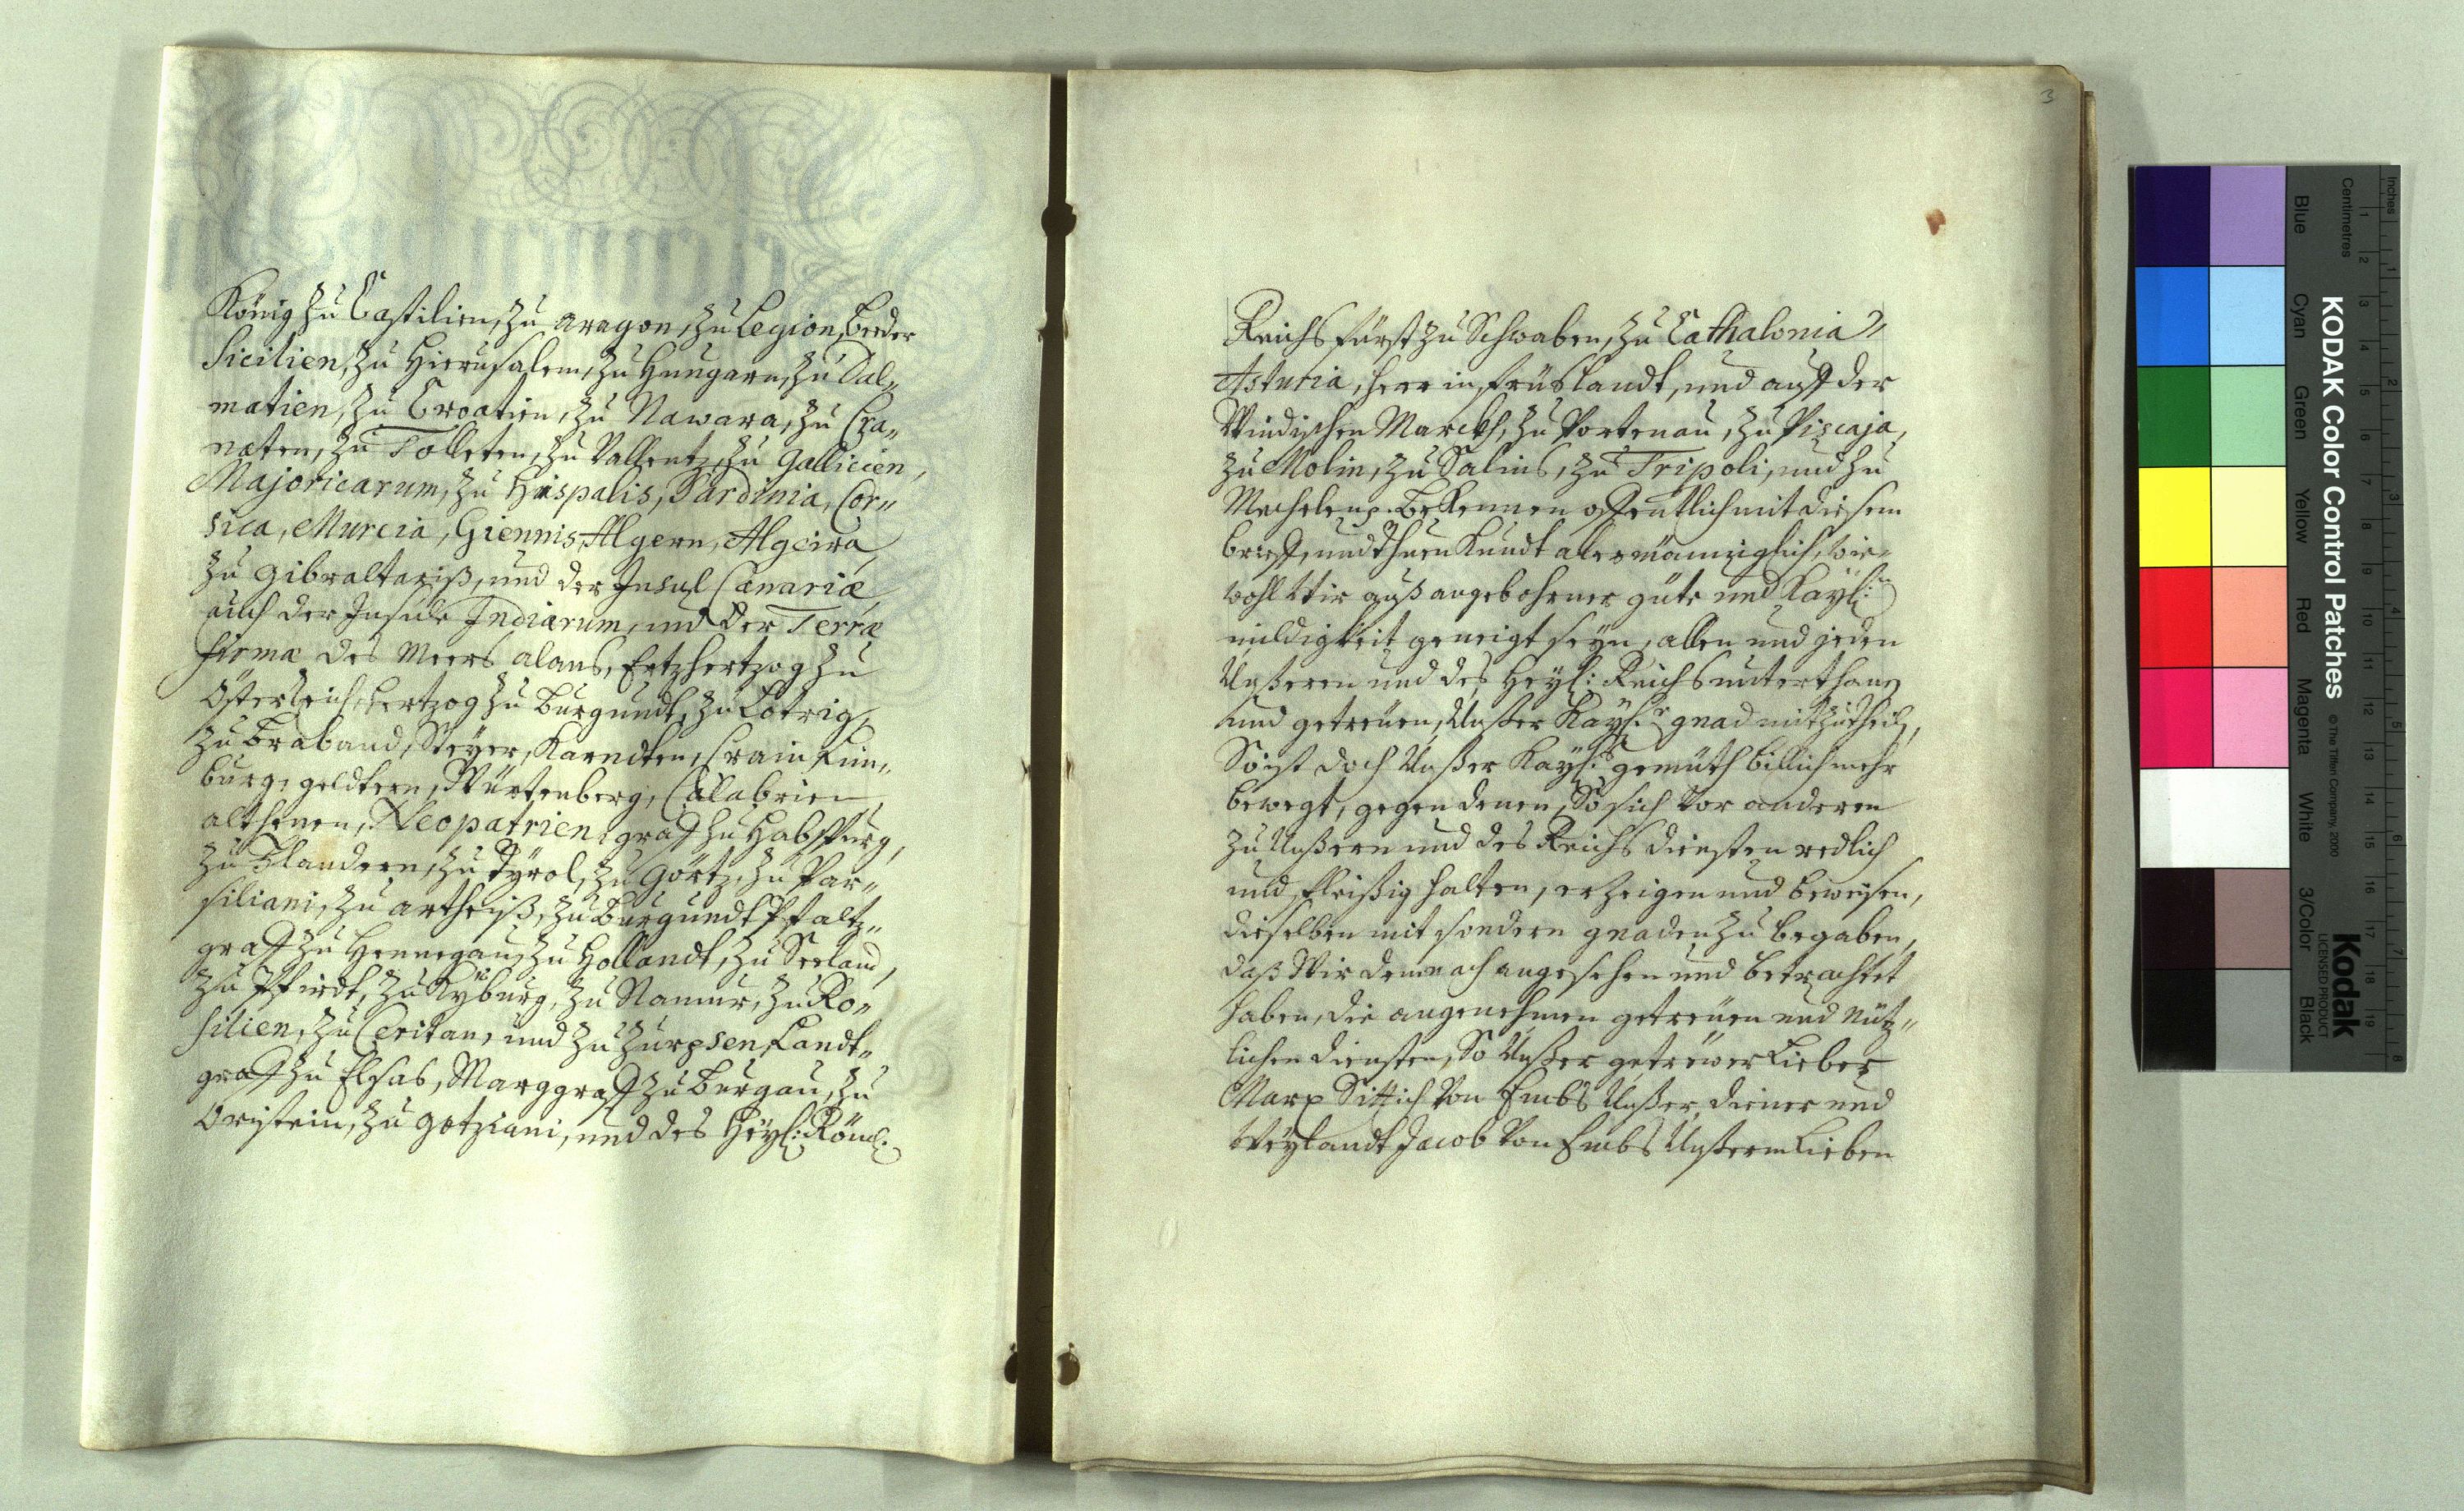 König zu Castilien, zu Aragon, zu Legion, beeder
Sicilien, zu Hierusalem, zu Hungarn, zu Dal„
matien, zu Croatien, zu Nawara, zu Gra„
naten, zu Tolleten, zu Vallentz, zu Gallicien,
Majoricarum, zu Hispalis, Sardinia, Cor„
sica, Murcia, Giennis, Algern, Algeira,
zu Gibraltariß, und der Insul Canariæ,
auch der Insule Indiarum, und der Terræ
firma des Meers alans, Ertzhertzog zu
Österreich, Hertzog zu Burgundt, zu Lotrig,
zu Braband, Steÿer, Karndten, Crain, Lim„
burg, geldtern, Würtenberg, Calabrien,
althenen, Neopatrien, graff zu Habspurg,
zu Flandern, zu Tÿrol, zu Görtz, zu Par„
siliani, zu artheiß, zu Burgundt, Pfaltz„
graff zu Hennegau, zu Hollandt, zu Seeland,
zu Pfirdt, zu Kÿburg, zu Namur, zu Ro„
silien, zu Ceritan, und zu Zurpsen, Landt„
graff zu Elsas, Marggraff zu Burgau, zu
Oristein, zu gotziani, und des Heÿl: Röml:
3
Reichs fürst zu Schwaben, zu Cathalonia,
Asturia, herr in frießlandt, und auff der
Windischen Marckh, zu Portenau, zu Piscaja,
zu Molin, zu Salins, zu Tripoli, und zu
Mechelen p. bekennen offentlich mit diesem
brieff, und thuen kundt allermänniglich, wie„
wohl Wir auß angebohrner güte und Kaÿl:n
mildigkeit geneigt seÿn, allen und jeden
Unßeren und des Heÿl: Reichs unterthanen
und getreuen, Unßer Kaÿl:e gnad mitzutheilen,
So ist doch Unßer Kaÿl:s gemüth billich mehr
bewegt, gegen denen, So sich vor anderen
zu Unßern und des Reichs diensten redlich
und fleißig halten, erzeigen und beweisen,
dieselben mit sondern gnaden zu begaben,
daß Wir demnach angesehen und betrachtet
haben, die angenehmen getreuen und nutz„
lichen diensten, So Unßer getrewer Lieber
Marx Sittich von Embs Unßer diener und
Weÿlandt Jacob von Embs Unßerm Lieben
KODAK Color Control Patches
© The Tiffen Company, 2000
Kodak
LICENSED PRODUCT
Inches
Centimetres
Blue
Cyan
Green
Yellow
Red
Magenta
White
3/Color
Black